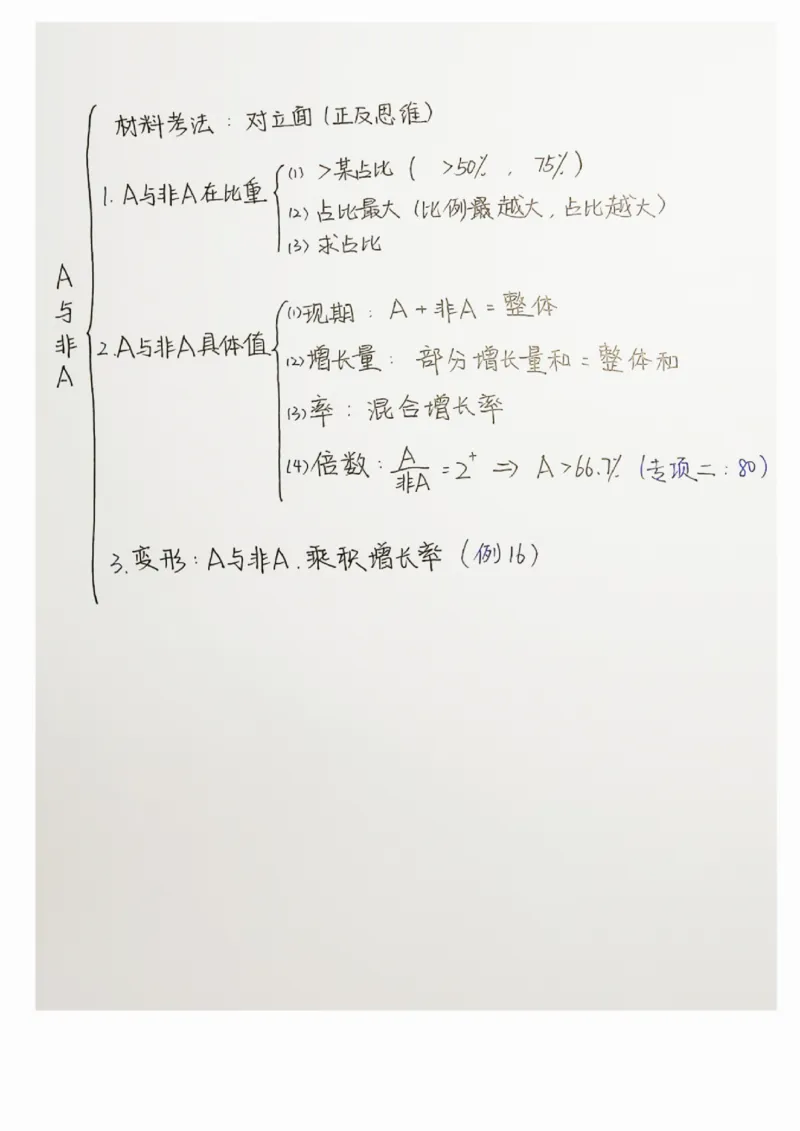 材料考法：对立面(正反思维)
1. A与非A在比重
(1) >某占比( >50%, 75%)
(2) 占比最大(比例越大,占比越大)
(3) 求占比
A与非A
2. A与非A具体值
(1)现期：A+非A=整体
(2)增长量：部分增长量和=整体和
(3)率：混合增长率
(4)倍数：A/非A=2⁺ ⇒ A>66.7% (专项二:80)
3. 变形：A与非A.乘积增长率(例16)